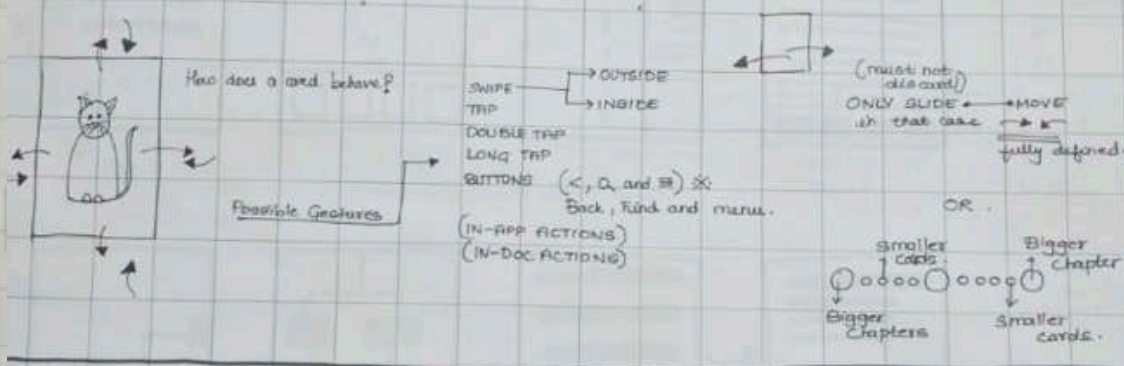 How does a card behave?
Possible Gestures
SWIPE
OUTSIDE
INSIDE
TAP
DOUBLE TAP
LONG TAP
BUTTONS (<, Q and ☰) ※
Back, Find and menu.
(IN-APP ACTIONS)
(IN-DOC ACTIONS)
(must not
discard)
ONLY SLIDE MOVE
in that case
fully defined.
OR.
smaller
cards.
Bigger
chapter
Bigger
chapters
smaller
cards.